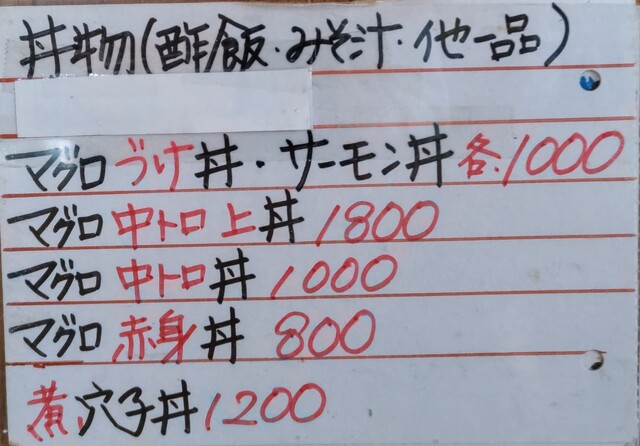 丼物(酢飯・みそ汁・他一品)
マグロづけ丼・サーモン丼各1000
マグロ中トロ上丼1800
マグロ中トロ丼1000
マグロ赤身丼800
煮穴子丼1200